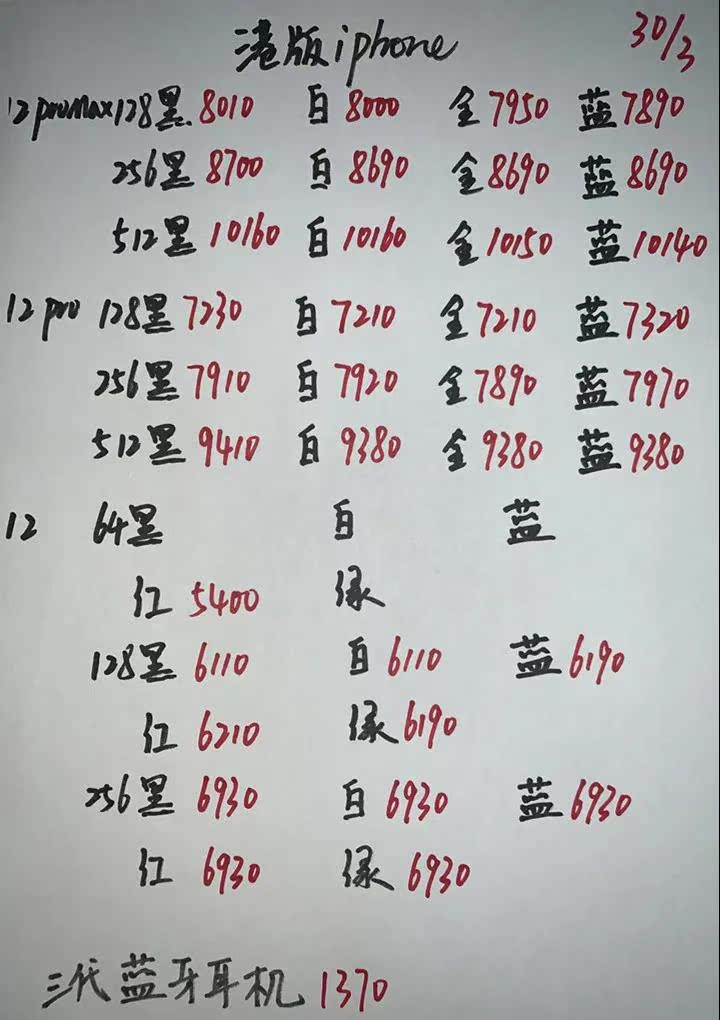 港版iphone 30/3
12 promax 128黑 8010 白 8000 金 7950 蓝 7890
256黑 8700 白 8690 金 8690 蓝 8690
512黑 10160 白 10160 金 10150 蓝 10140
12 pro 128黑 7230 白 7210 金 7210 蓝 7320
256黑 7910 白 7920 金 7890 蓝 7970
512黑 9410 白 9380 金 9380 蓝 9380
12 64黑 白 蓝
红 5400 绿
128黑 6110 白 6110 蓝 6190
红 6210 绿 6190
256黑 6930 白 6930 蓝 6930
红 6930 绿 6930
三代蓝牙耳机 1370